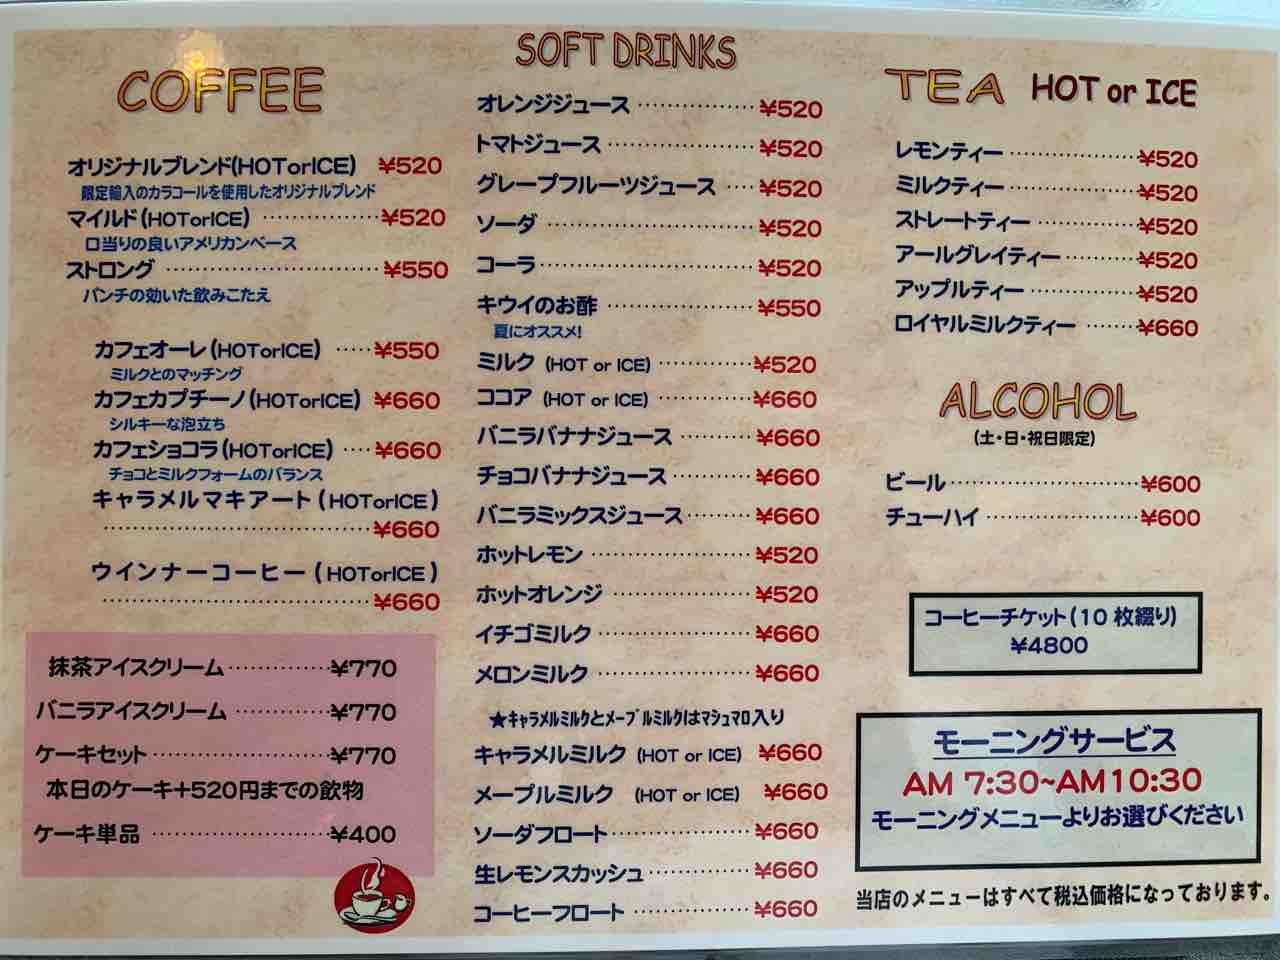 COFFEE
オリジナルブレンド(HOTorICE) ¥520
限定輸入のカラコールを使用したオリジナルブレンド
マイルド(HOTorICE) ················ ¥520
口当りの良いアメリカンベース
ストロング ···························· ¥550
パンチの効いた飲みごたえ
カフェオーレ(HOTorICE) ····· ¥550
ミルクとのマッチング
カフェカプチーノ(HOTorICE) ¥660
シルキーな泡立ち
カフェショコラ(HOTorICE) ···· ¥660
チョコとミルクフォームのバランス
キャラメルマキアート(HOTorICE)
··································· ¥660
ウインナーコーヒー(HOTorICE)
··································· ¥660
抹茶アイスクリーム ············· ¥770
バニラアイスクリーム ············ ¥770
ケーキセット ························ ¥770
本日のケーキ+520円までの飲物
ケーキ単品 ······················· ¥400
SOFT DRINKS
オレンジジュース ················ ¥520
トマトジュース ···················· ¥520
グレープフルーツジュース ···· ¥520
ソーダ ···························· ¥520
コーラ ···························· ¥520
キウイのお酢 ···················· ¥550
夏にオススメ!
ミルク (HOT or ICE) ············ ¥520
ココア (HOT or ICE) ············ ¥660
バニラバナナジュース ·········· ¥660
チョコバナナジュース ··········· ¥660
バニラミックスジュース ········· ¥660
ホットレモン ······················ ¥520
ホットオレンジ ··················· ¥520
イチゴミルク ····················· ¥660
メロンミルク ····················· ¥660
★キャラメルミルクとメープルミルクはマシュマロ入り
キャラメルミルク (HOT or ICE) ¥660
メープルミルク (HOT or ICE) ¥660
ソーダフロート ··················· ¥660
生レモンスカッシュ ·············· ¥660
コーヒーフロート ················ ¥660
TEA HOT or ICE
レモンティー ····················· ¥520
ミルクティー ····················· ¥520
ストレートティー ················· ¥520
アールグレイティー ············· ¥520
アップルティー ··················· ¥520
ロイヤルミルクティー ··········· ¥660
ALCOHOL
(土・日・祝日限定)
ビール ···························· ¥600
チューハイ ······················· ¥600
コーヒーチケット(10枚綴り)
¥4800
モーニングサービス
AM 7:30~AM10:30
モーニングメニューよりお選びください
当店のメニューはすべて税込価格になっております。